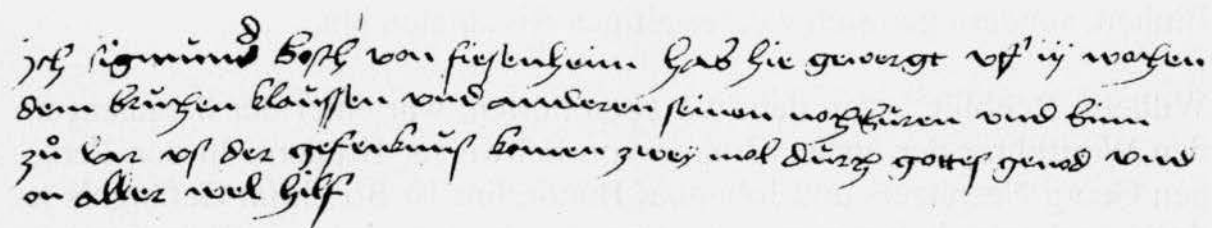 jch sigmund bosch von fiesenheim hab hie gewergt vff iij wochen
dem bruchen klaussen vnd anderen seinen nochburen vnd binn
zů lar vs der gefenknus komen zwey mol durch gottes genod vnd
on aller wel hilf